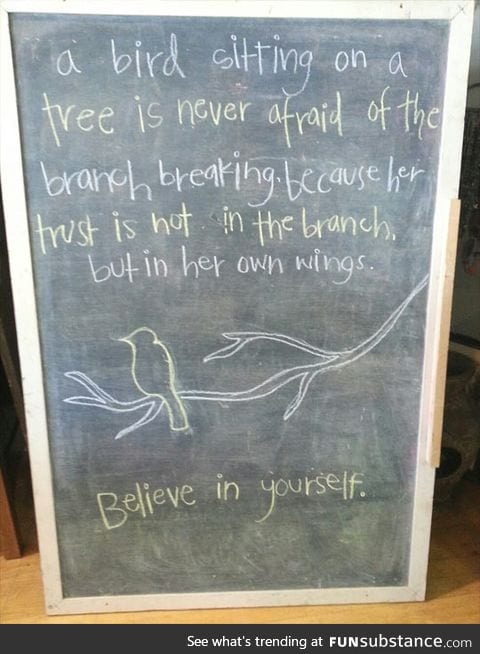 a bird sitting on a
tree is never afraid of the
branch breaking. because her
trust is not in the branch.
but in her own wings.
Believe in yourself.
See what's trending at FUNsubstance.com